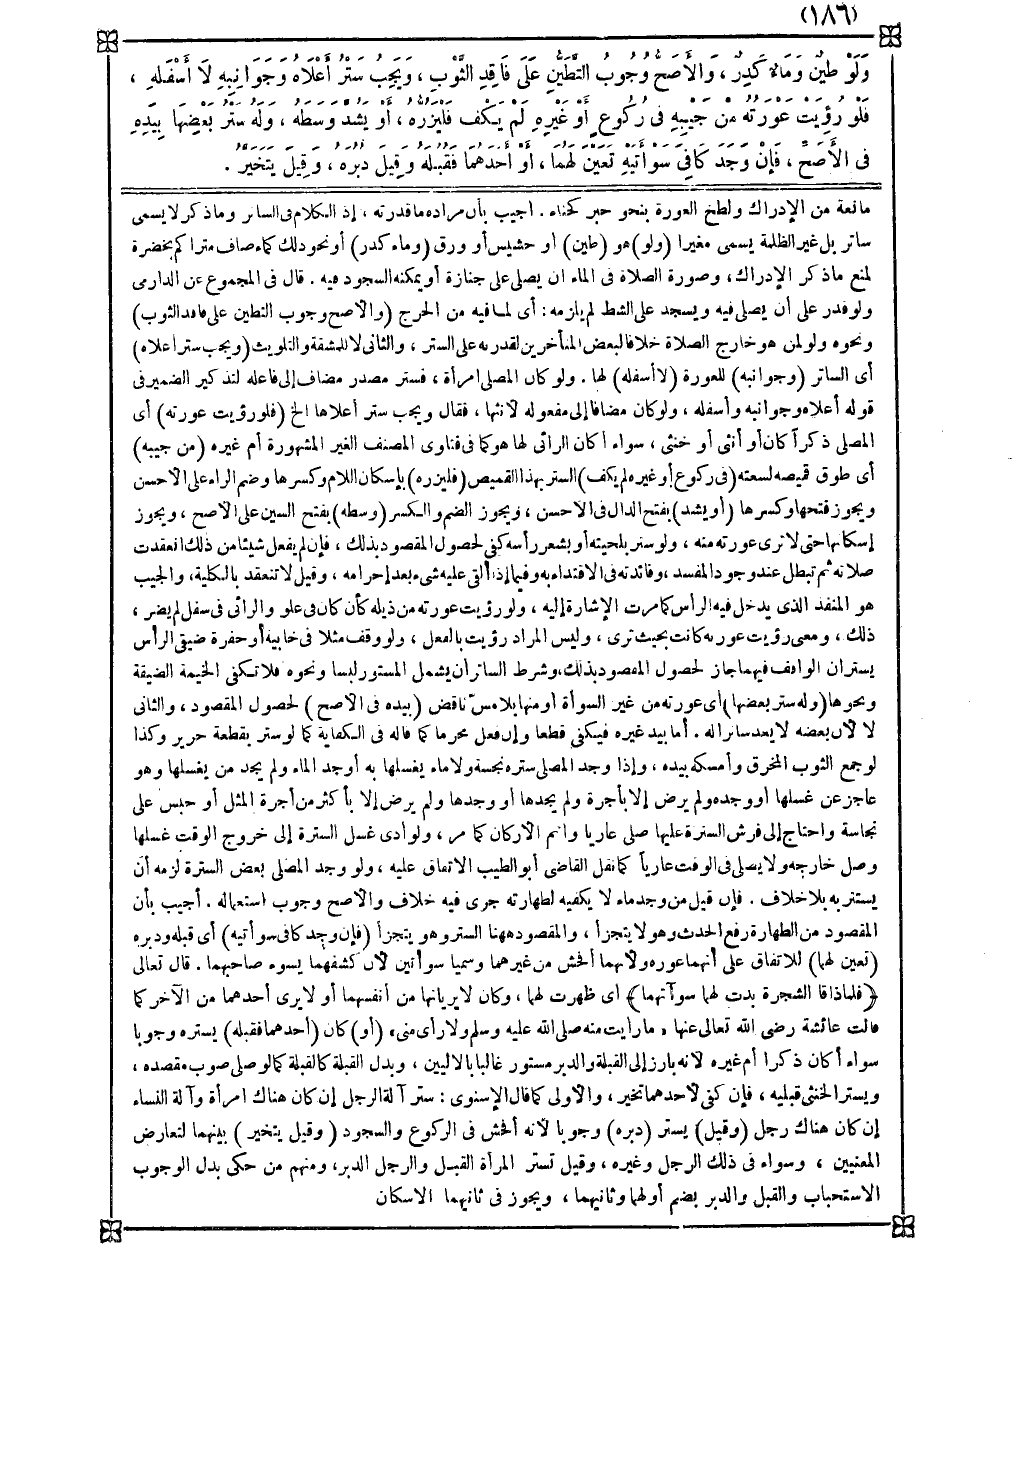 (١٨٦)
وَلَوْ طِينٌ وَمَاءٌ كَدِرٌ ، وَالأَصَحُّ وُجُوبُ التَّطَيُّنِ عَلَى فَاقِدِ الثَّوْبِ ، وَيَجِبُ سَتْرُ أَعْلَاهُ وَجَوَانِبِهِ لَا أَسْفَلِهِ ،
فَلَوْ رُؤِيَتْ عَوْرَتُهُ مِنْ جَيْبِهِ فِى رُكُوعٍ أَوْ غَيْرِهِ لَمْ يَكْفِ فَلْيُزِرَّهُ ، أَوْ يَشُدَّ وَسَطَهُ ، وَلَهُ سَتْرُ بَعْضِهَا بِيَدِهِ
فى الأَصَحِّ ، فَإِنْ وَجَدَ كَافِىَ سَوْأَتَيْهِ تَعَيَّنَ لَهُمَا ، أَوْ أَحَدَهُمَا فَقُبُلَهُ وَقِيلَ دُبُرَهُ ، وَقِيلَ يَتَخَيَّرُ .
مانعة من الإدراك ولطخ العورة بنحو حبر كحناء . أجيب بأن مراده ما قدرته ، إذ الكلام فى الساتر وماذكر لايسمى
ساتر بل غير الظلمة يسمى مغيرا (ولو) هو (طين) أو حشيس أو ورق (وماء كدر) أو نحو ذلك كماء صاف متراكم بخضرة
لمنع ماذكر الإدراك ، وصورة الصلاة فى الماء ان يصلى على جنازة أو يمكنه السجود فيه . قال فى المجموع عن الدارمى
ولو قدر على أن يصلى فيه ويسجد على الشط لم يلزمه : أى لما فيه من الحرج (والأصح وجوب التطين على فاقد الثوب)
ونحوه ولو لمن هو خارج الصلاة خلافا لبعض المتأخرين لقدرته على الستر ، والثانى لا للمشقة والتلويث (ويجب ستر أعلاه)
أى الساتر (وجوانبه) للعورة (لا أسفله) لها . ولو كان المصلى امرأة ، فستر مصدر مضاف إلى فاعله لتذكير الضمير فى
قوله أعلاه وجوانبه وأسفله ، ولو كان مضافا إلى مفعوله لانثها ، فقال ويجب ستر أعلاها الخ (فلو رؤيت عورته) أى
المصلى ذكرا كان أو أنثى أو خنثى ، سواء أكان الرائى لها هو كما فى فتاوى المصنف الغير المشهورة أم غيره (من جيبه)
أى طوق قميصه لسعته (فى ركوع أو غيره لم يكف) الستر بهذا القميص (فليزره) بإسكان اللام وكسرها وضم الراء على الأحسن
ويجوز فتحها وكسرها (أو يشد) بفتح الدال فى الأحسن ، ويجوز الضم والكسر (وسطه) بفتح السين على الأصح ، ويجوز
إسكانها حتى لا ترى عورته منه ، ولو ستر بلحيته أو بشعر رأسه كفى لحصول المقصود بذلك ، فإن لم يفعل شيئا من ذلك انعقدت
صلاته ثم تبطل عند وجود المفسد ، وفائدته فى الاقتداء به وفيما إذا ألقى عليه شىء بعد إحرامه ، وقيل لا تنعقد بالكلية ، والجيب
هو المنفذ الذى يدخل فيه الرأس كما مرت الإشارة إليه ، ولو رؤيت عورته من ذيله كأن كان فى علو والرائى فى سفل لم يضر ،
ذلك ، ومعنى رؤيت عورته كانت بحيث ترى ، وليس المراد رؤيت بالفعل ، ولو وقف مثلا فى خابية أو حفرة ضيقى الرأس
يستران الواقف فيهما جاز لحصول المقصود بذلك ، وشرط الساتر أن يشمل المستور لبسا ونحوه فلا تكفى الخيمة الضيقة
ونحوها (وله ستر بعضها) أى عورته من غير السوأة أو منها بلا مس ناقض (بيده فى الأصح) لحصول المقصود ، والثانى
لا لأن بعضه لا يعد ساترا له . أما بيد غيره فيكفى قطعا وإن فعل محرما كما قاله فى الكفاية كما لو ستر بقطعة حرير وكذا
لو جمع الثوب المخرق وأمسكه بيده ، وإذا وجد المصلى سترة نجسة ولا ماء يغسلها به أو جد الماء ولم يجد من يغسلها وهو
عاجز عن غسلها أو وجده ولم يرض إلا بأجرة ولم يجدها أو وجدها ولم يرض إلا بأكثر من أجرة المثل أو حبس على
نجاسة واحتاج إلى فرش السترة عليها صلى عاريا وأتم الأركان كما مر ، ولو أدى غسل السترة إلى خروج الوقت غسلها
وصل خارجه ولا يصلى فى الوقت عارياً كما نقل القاضى أبو الطيب الاتفاق عليه ، ولو وجد المصلى بعض السترة لزمه أن
يستتر به بلا خلاف . فإن قيل من وجد ماء لا يكفيه لطهارته جرى فيه خلاف والأصح وجوب استعماله . أجيب بأن
المقصود من الطهارة رفع الحدث وهو لا يتجزأ ، والمقصود ههنا الستر وهو يتجزأ (فإن وجد كافى سوأتيه) أى قبله ودبره
(تعين لهما) للاتفاق على أنهما عورة ولأنهما أفحش من غيرهما وسميا سوأتين لأن كشفهما يسوء صاحبهما . قال تعالى
﴿فلما ذاقا الشجرة بدت لهما سوآتهما﴾ أى ظهرت لهما ، وكان لا يريانها من أنفسهما أو لا يرى أحدهما من الآخر كما
قالت عائشة رضى الله تعالى عنها « ما رأيت منه صلى الله عليه وسلم ولا رأى منى » (أو) كان (أحدهما فقبله) يستره وجوبا
سواء أكان ذكرا أم غيره لأنه بارز إلى القبلة والدبر مستور غالبا بالأليين ، وبدل القبلة كالقبلة كما لو صلى صوب مقصده ،
ويستر الخنثى قبليه ، فإن كفى لأحدهما تخير ، والأولى كما قال الإسنوى : ستر آلة الرجل إن كان هناك امرأة وآلة النساء
إن كان هناك رجل (وقيل) يستر (دبره) وجوبا لأنه أفحش فى الركوع والسجود (وقيل يتخير) بينهما لتعارض
المعنيين ، وسواء فى ذلك الرجل وغيره ، وقيل تستر المرأة القبل والرجل الدبر ، ومنهم من حكى بدل الوجوب
الاستحباب والقبل والدبر بضم أولهما وثانيهما ، ويجوز فى ثانيهما الاسكان